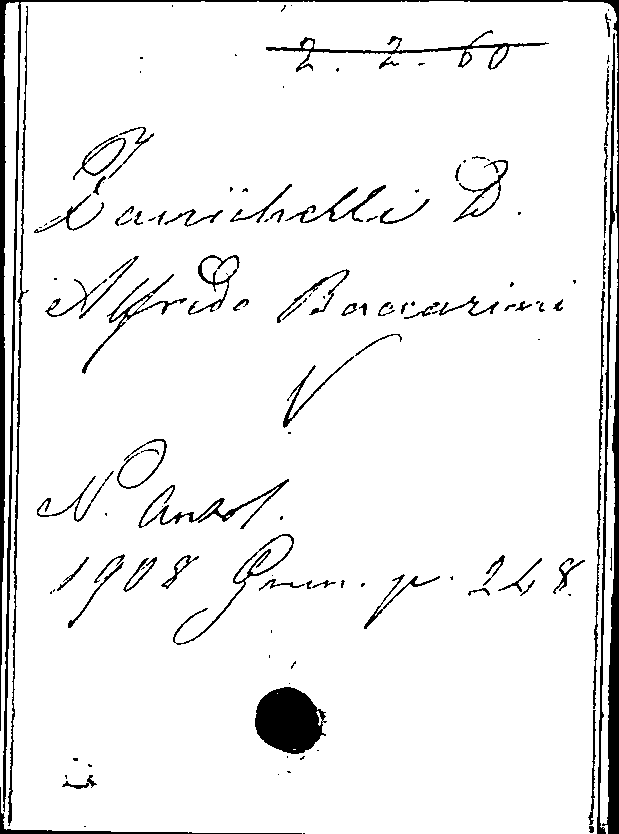 2. 2. 60
Zanichelli D.
Alfredo Baccarini
V
N. Antol.
1908 Genn. p. 248